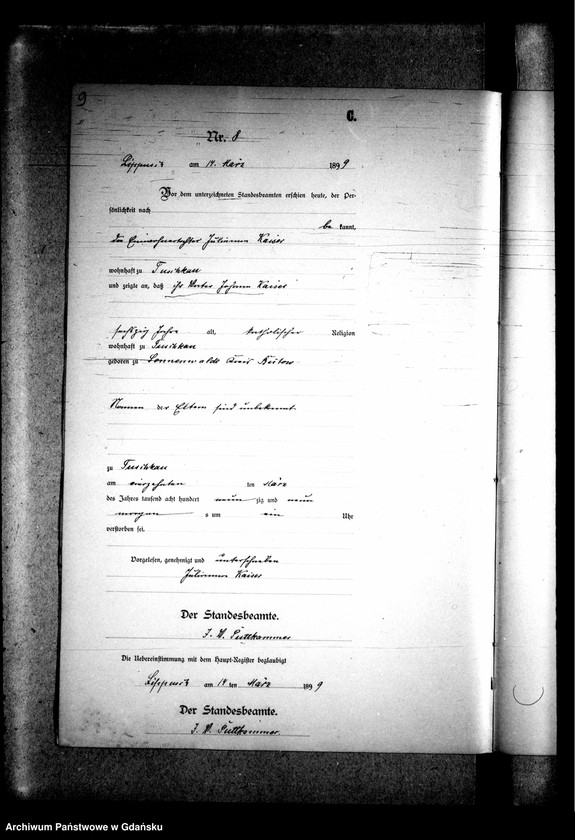 9
C.
Nr. 8
Lippusch am 14. März 1899
Vor dem unterzeichneten Standesbeamten erschien heute, der Per-
sönlichkeit nach
be kannt,
die Einwohnertochter Julianna Kaiser
wohnhaft zu Tuschkau
und zeigte an, daß ihr Vater Johann Kaiser
sechszig Jahre alt, katholischer Religion
wohnhaft zu Tuschkau
geboren zu Sonnenwalde Kreis Bütow
Namen der Eltern sind unbekannt.
zu Tuschkau
am vierzehnten ten März
des Jahres tausend acht hundert neun zig und neun
morgen s um ein Uhr
verstorben sei.
Vorgelesen, genehmigt und unterschrieben
Julianna Kaiser
Der Standesbeamte.
J. V. Puttkammer
Die Uebereinstimmung mit dem Haupt-Register beglaubigt
Lippusch am 14 ten März 1899
Der Standesbeamte.
J. V. Puttkammer.
Archiwum Państwowe w Gdańsku